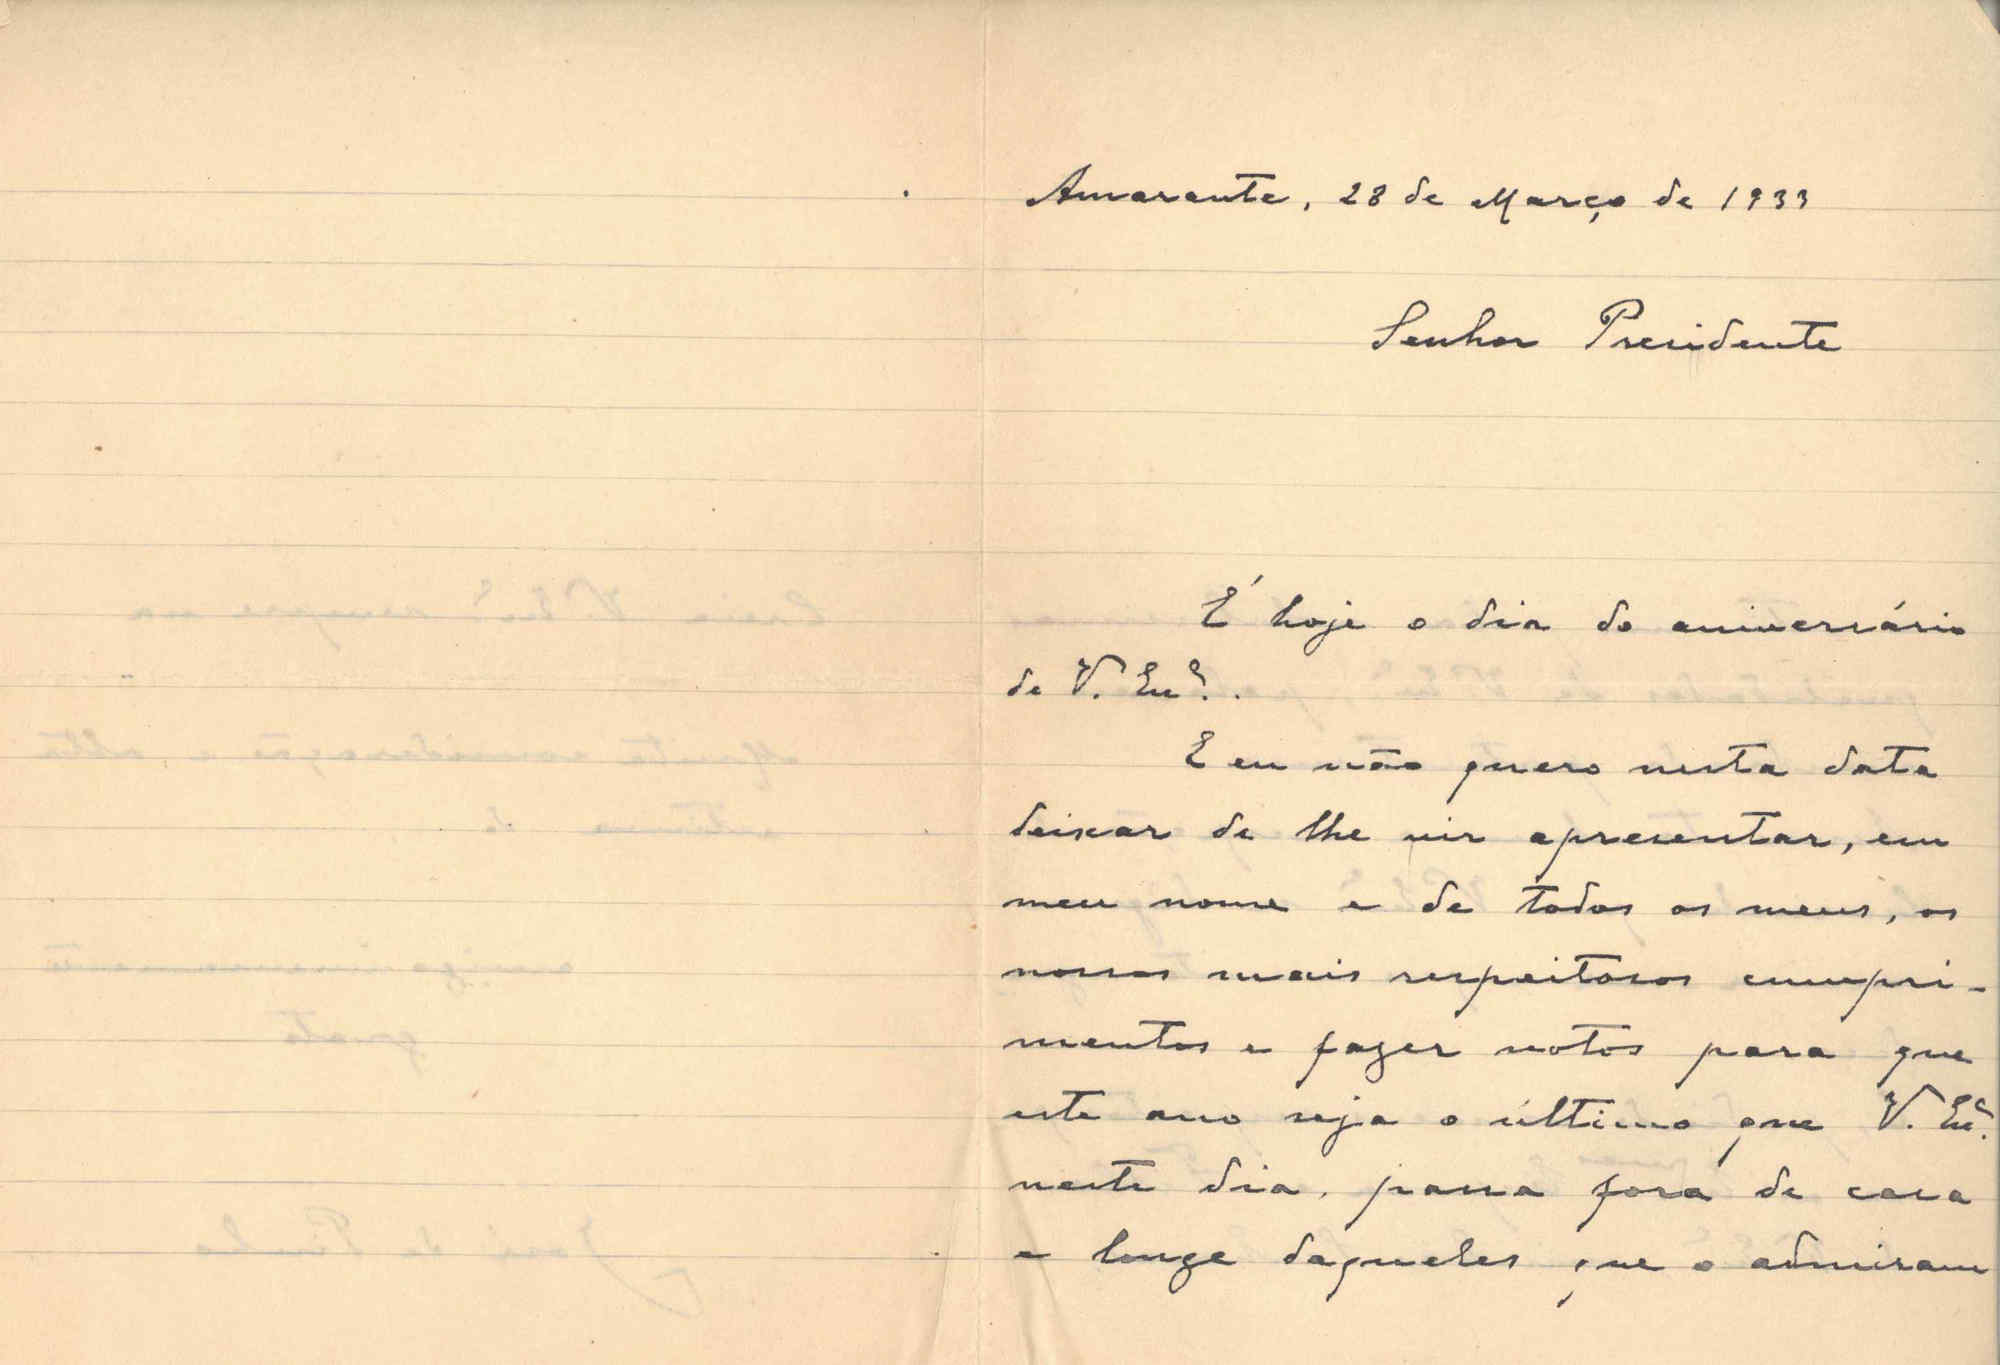 Amarante, 28 de Março de 1933
Senhor Presidente
É hoje o dia do aniversário
de V. Exª.
E eu não quero nesta data
deixar de lhe vir apresentar, em
meu nome e de todos os meus, os
nossos mais respeitosos cumpri-
mentos e fazer votos para que
este ano seja o último que V. Exª.
neste dia, passa fora de casa
e longe daqueles que o admiram
Creia V. Exª sempre na
Muita consideração e alta
estima de
amigo imensamente
grato
José de Pinho